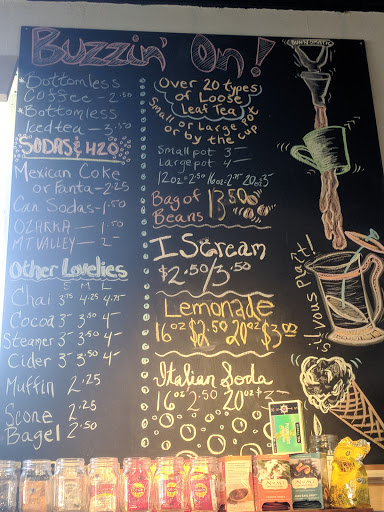 Buzzin' On!
Bottomless
Coffee - 2.50
Bottomless
Icedtea - 3.50
SODAS & H2O
Mexican Coke
or Fanta - 2.25
Can Sodas - 1.50
OZARKA - 1.50
MT VALLEY - 2
Other Lovelies
S M L
Chai 3.75 4.25 4.75
Cocoa 3 3.50 4
Steamer 3 3.50 4
Cider 3 3.50 4
Muffin 2.25
Scone 2.25
Bagel 2.50
Over 20 types
of Loose
Leaf Tea
Small or Large Pot
or by the cup
Small pot 3
Large pot 4
12oz = 2.50 20oz
Bag of
Beans 13.50
I Scream
$2.50/3.50
Lemonade
16 oz $2.50 20oz $3.00
Italian Soda
16oz 2.50 20oz 3
s'il vous plaît!